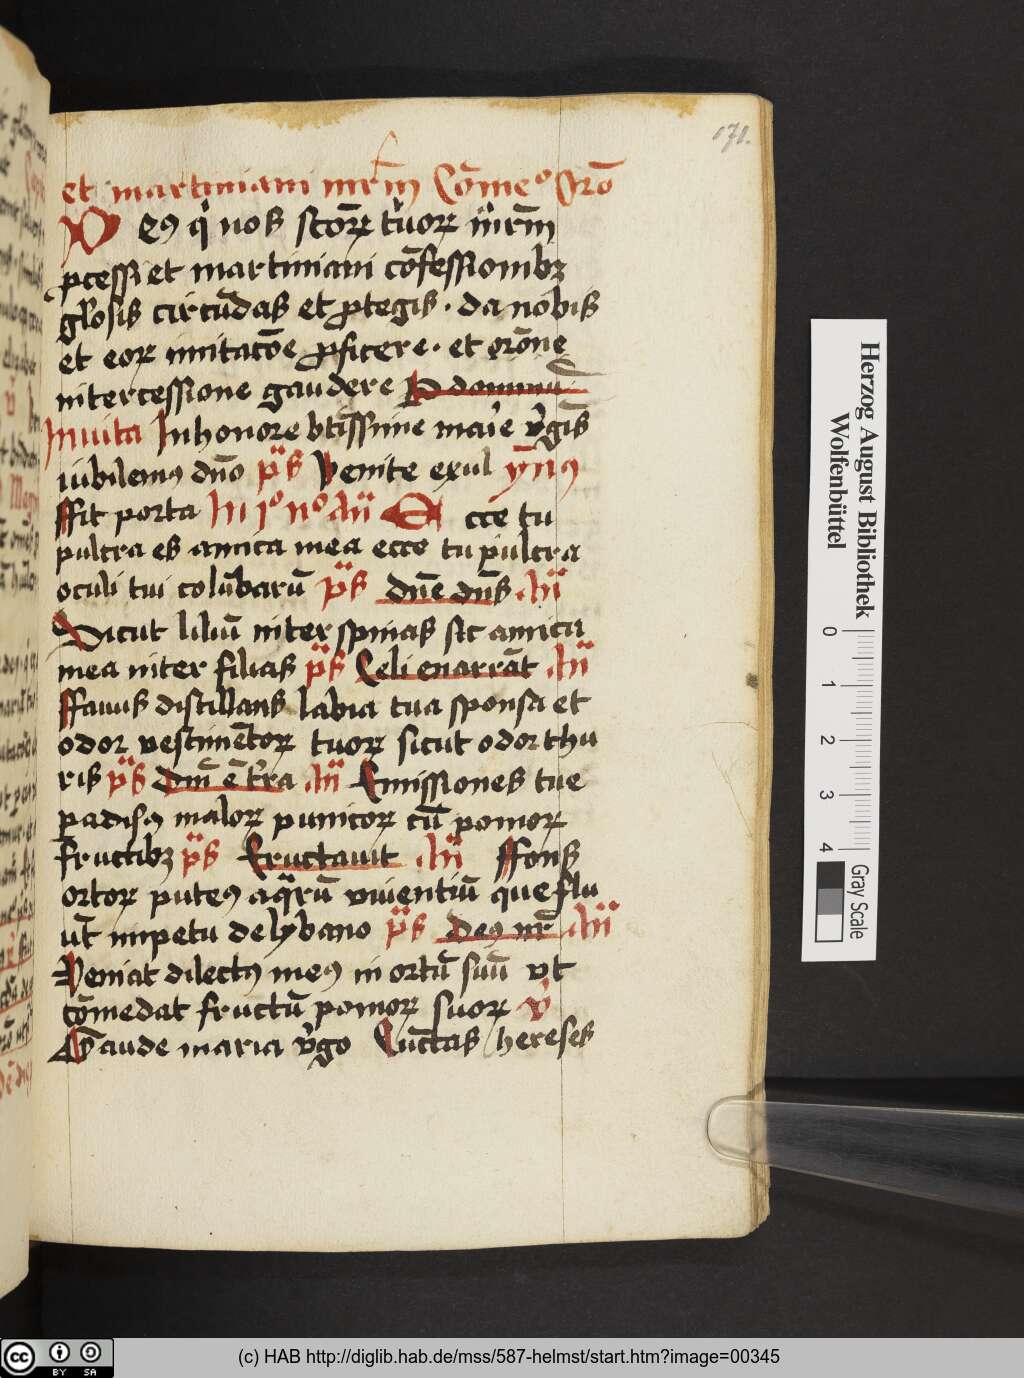 171.
et martiniani mr̄m Cōme° Orō
Deꝰ qͥ nos sctōꝝ tuoꝝ mr̄m
ꝓcessi et martiniani cōfessionibꝫ
gl̄osis circūdas et ꝓtegis · da nobis
et eoꝝ imitacōe ꝓficere · et orōne
intercessione gaudere P dominū
Inuita In honore btissime marie v̓gīs
iubilemꝰ dn̄o p̄s Venite exul ym̄nꝰ
ffit porta In I° n° an̄ Ecce tu
pulcra es amica mea ecce tu pulcra
oculi tui colūbarū p̄s dn̄e dn̄s an̄
Sicut liliū inter spinas sic amica
mea inter filias p̄s Celi enarrāt an̄
ffauus distillans labia tua sponsa et
odor vestimētoꝝ tuoꝝ sicut odor thu
ris p̄s dn̄i ē t̓ra an̄ Emissiones tue
padisꝰ maloꝝ punicoꝝ cū pomoꝝ
fructibꝫ p̄s Eructauit an̄ ffons
ortoꝝ puteꝰ aqrū viuentiū que flu
ūt impetu de lybano p̄s Deꝰ nr̄ an̄
Veniat dilectꝰ meꝰ in ortū suū vt
cōmedat fructū pomoꝝ suoꝝ v̓
Gaude maria v̓go Cūctas hereses
Herzog August Bibliothek
Wolfenbüttel
0 1 2 3 4
Gray Scale
cc BY SA
(c) HAB http://diglib.hab.de/mss/587-helmst/start.htm?image=00345